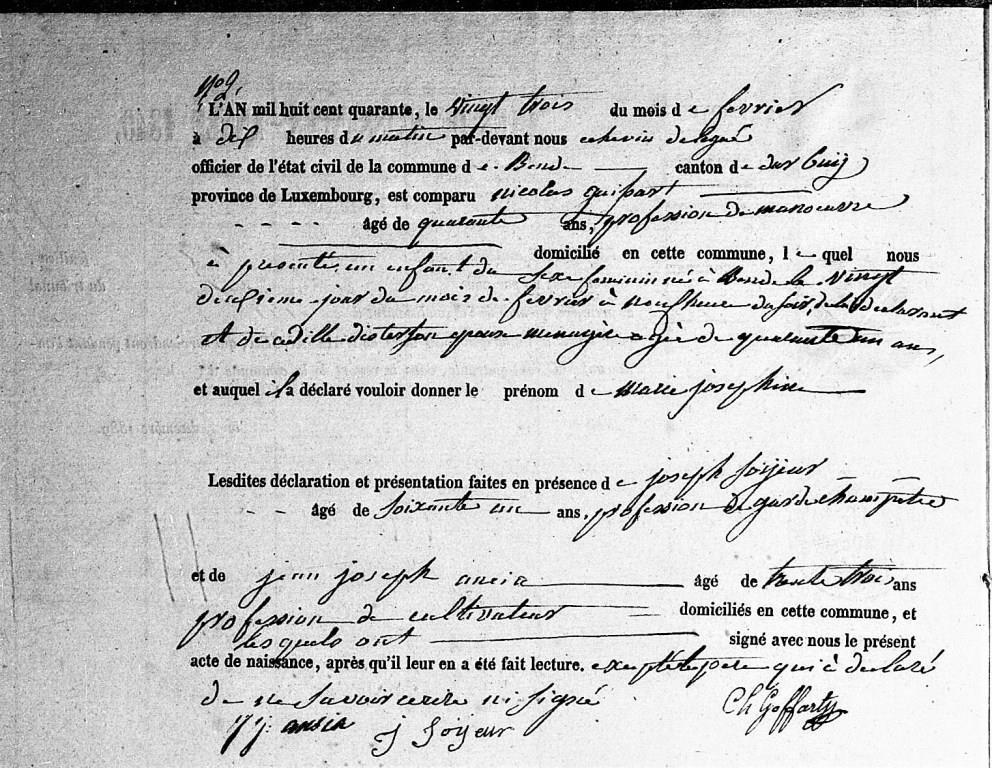 N° 9.
L'AN mil huit cent quarante, le vingt trois du mois de fevrier
à dix heures du matin par-devant nous echevin delegué
officier de l'état civil de la commune de Bende canton de durbuy
province de Luxembourg, est comparu nicolas guispart
âgé de quarante ans, profession de manoeuvre
domicilié en cette commune, le quel nous
à presenté un enfant du sexe feminin né à Bende le vingt
deuxieme jour du mois de fevrier à neuf heure du soir, de lui declarant
et de odille disterfon epouse menagere agée de quarante un ans,
et auquel il a déclaré vouloir donner le prénom de marie josephine
Lesdites déclaration et présentation faites en présence de joseph soyeur
âgé de soixante un ans, profession de garde champetre
et de jean joseph ancia âgé de trente trois ans
profession de cultivateur domiciliés en cette commune, et
lesquels ont signé avec nous le présent
acte de naissance, après qu'il leur en a été fait lecture. excepté le pere qui à declaré
de ne savoir ecrire ni signé
Ch Goffart
J J ancia J Soyeur